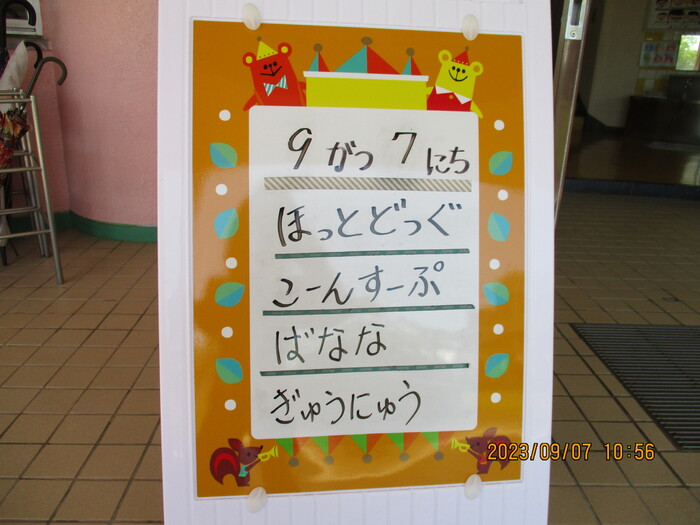 9がつ7にち
ほっとどっぐ
こーんすーぷ
ばなな
ぎゅうにゅう
2023/09/07 10:56